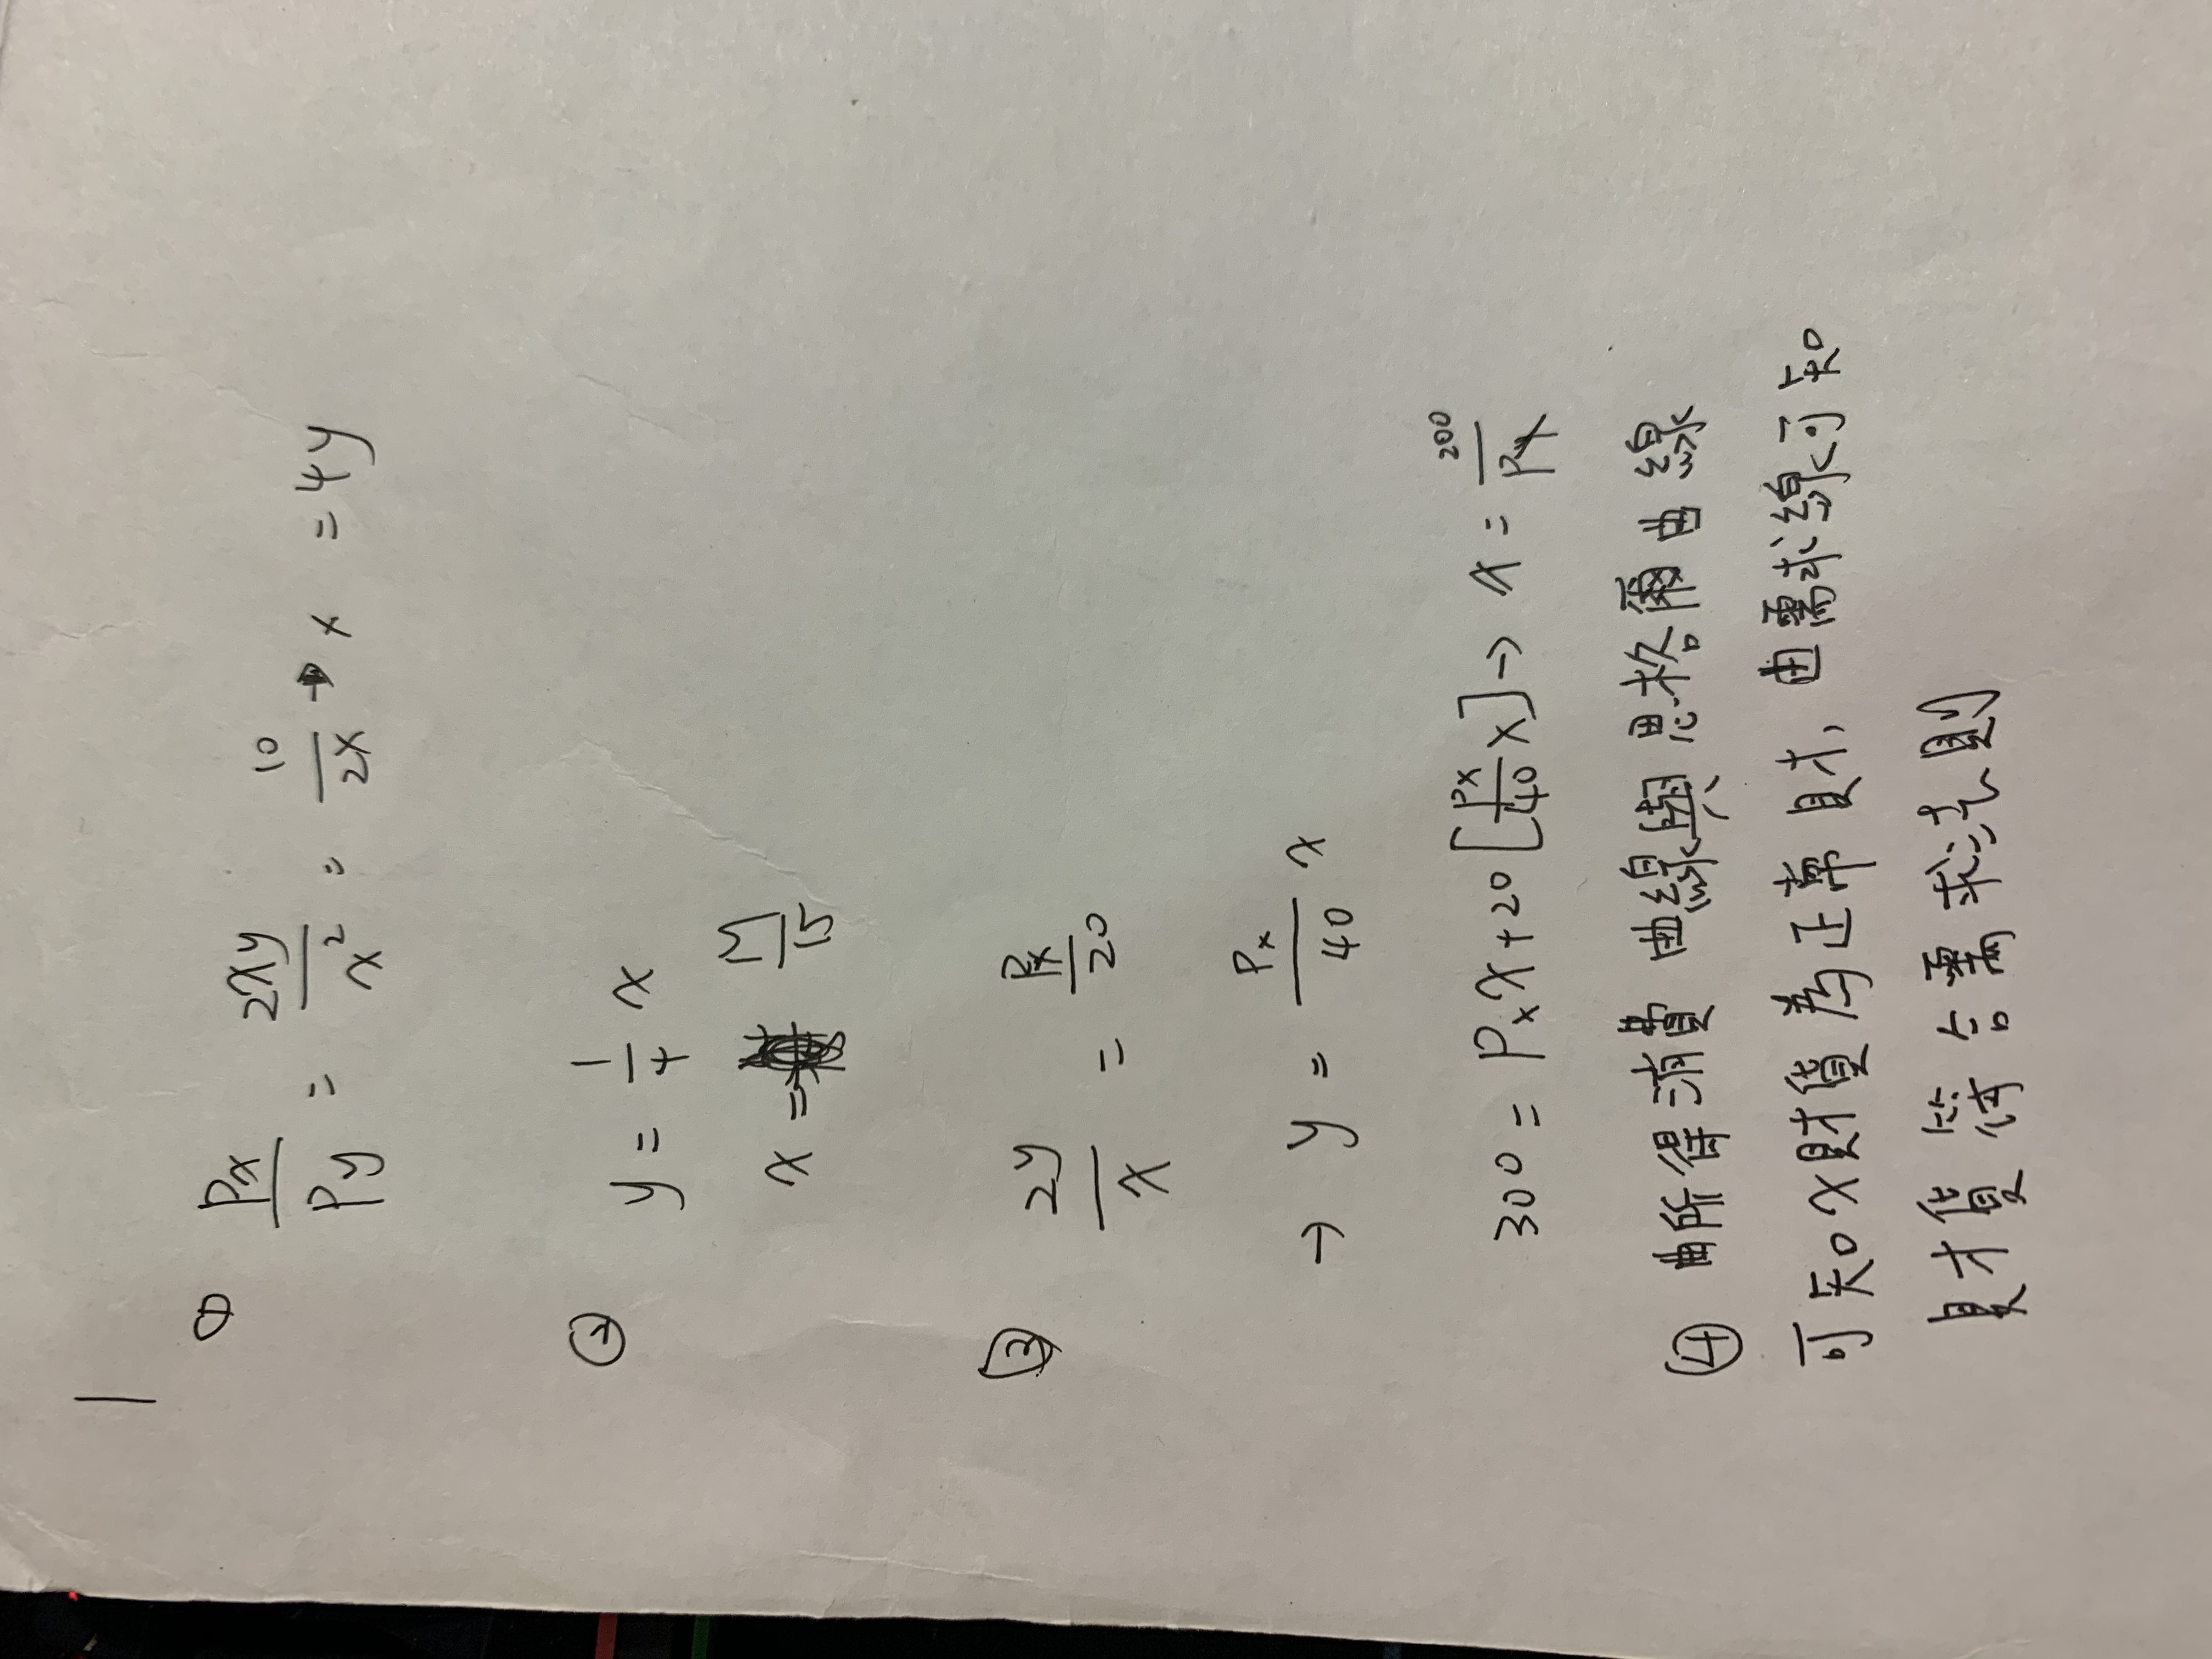 1
① Px/Py = 2xy/x² = 10/2x → x = 4y
② y = 1/4 x
x = M/15
③ 2y/x = Px/20
→ y = Px/40 x
300 = Px x + 20 [Px/40 x] → x = 200/Px
④ 由所得消費曲線與恩格爾曲線
可知x財貨為正常財,由需求線可知
財貨符合需求法則